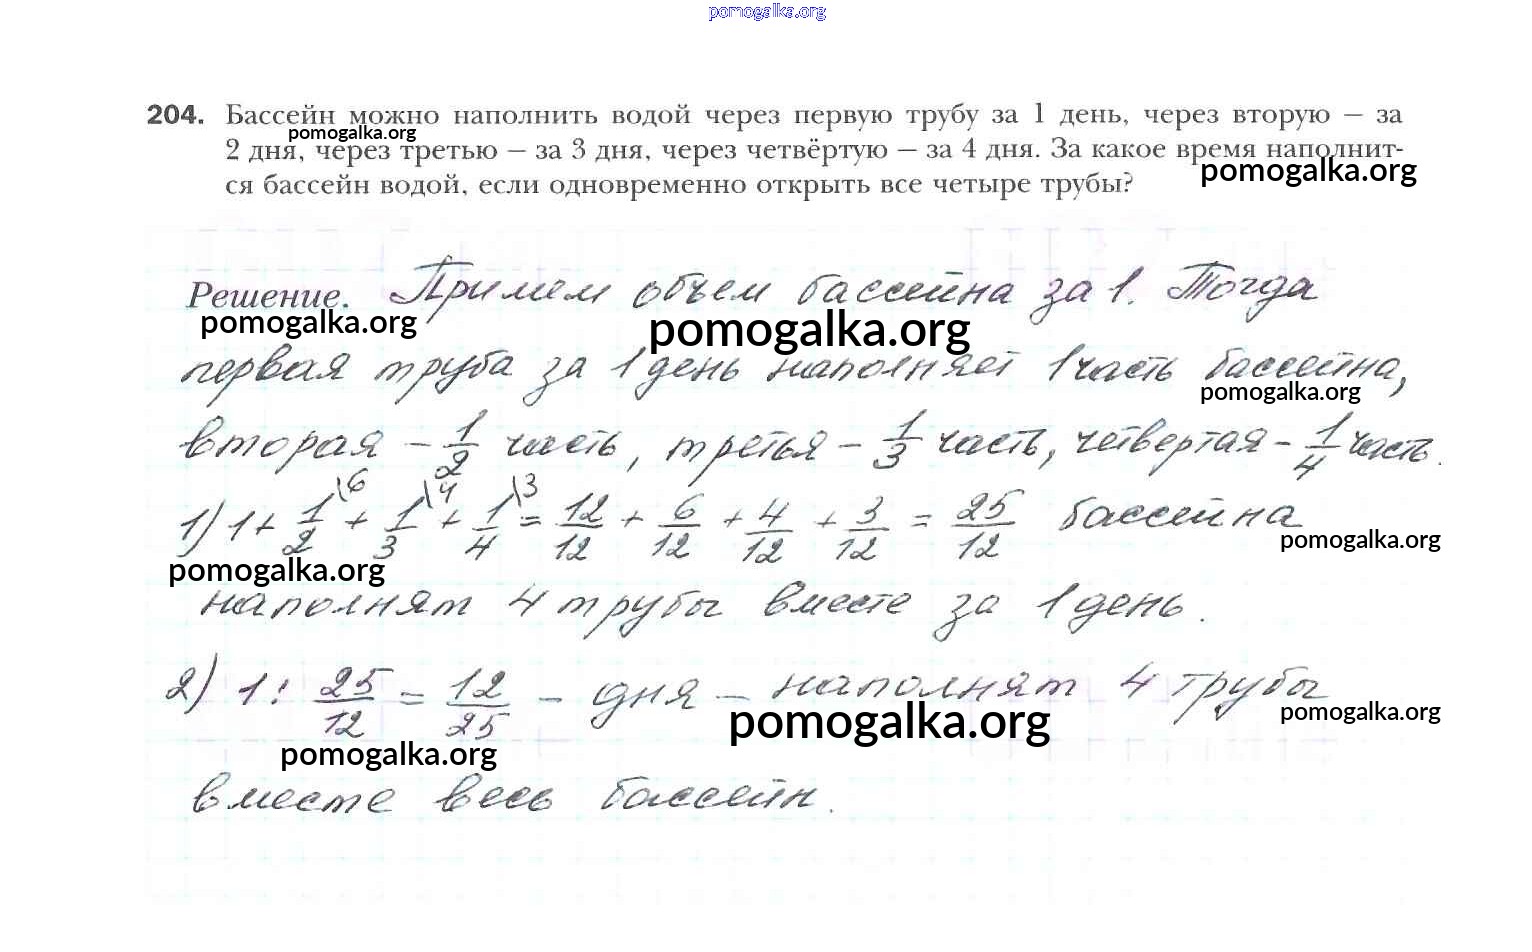 pomogalka.org
204. Бассейн можно наполнить водой через первую трубу за 1 день, через вторую – за
pomogalka.org
2 дня, через третью – за 3 дня, через четвёртую – за 4 дня. За какое время наполнит-
pomogalka.org
ся бассейн водой, если одновременно открыть все четыре трубы?
Решение. Примем объем бассейна за 1. Тогда
pomogalka.org pomogalka.org
первая труба за 1 день наполняет 1 часть бассейна,
pomogalka.org
вторая – 1/2 часть, третья – 1/3 часть, четвертая – 1/4 часть.
1) 1 + 1/2 \6 + 1/3 \4 + 1/4 \3 = 12/12 + 6/12 + 4/12 + 3/12 = 25/12 бассейна
pomogalka.org pomogalka.org
наполнят 4 трубы вместе за 1 день.
2) 1 : 25/12 = 12/25 – дня – наполнят 4 трубы
pomogalka.org pomogalka.org pomogalka.org
вместе весь бассейн.